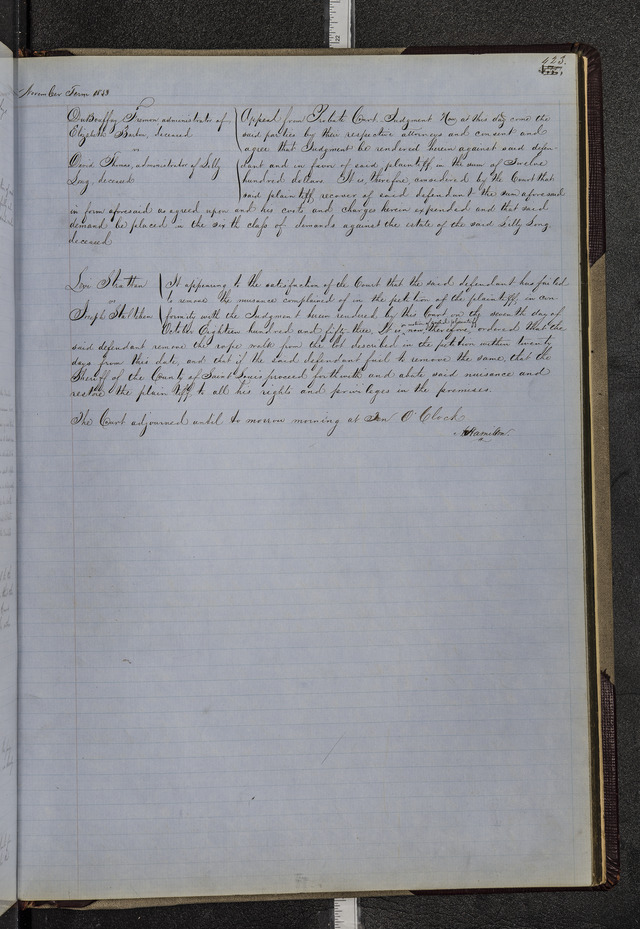 423.
November Term 1853
DuBouffay Fremon, administrator of
Elizabeth Burton, deceased
vs
David Thomas, administrator of Lilly
Long, deceased
Appeal from Probate Court. Judgment. Now, at this day come the
said parties by their respective attorneys and consent and
agree that Judgment be rendered herein against said defen-
dant and in favor of said plaintiff in the sum of Twelve
hundred dollars. It is, therefore, considered by the Court that
said plaintiff recover of said defendant the sum aforesaid
in form aforesaid as agreed upon and his costs and charges herein expended and that said
demand be placed in the sixth class of demands against the estate of the said Lilly Long
deceased
Levi Stratton
vs
Joseph
It appearing to the satisfaction of the Court that the said defendant has failed
to remove the nuisance complained of in the petition of the plaintiff, in con-
formity with the Judgment herein rendered by this Court on the seventh day of
October Eighteen hundred and fifty three, It is, now, therefore, ordered that the
said defendant remove the rope walk from the lot described in the petition within twenty
days from this date, and that if the said defendant fail to remove the same, that the
Sheriff of the County of Saint Louis proceed forthwith and abate said nuisance and
restore the plaintiff to all his rights and privileges in the premises.
The Court adjourned until to morrow morning at Ten O'Clock
A Hamilton